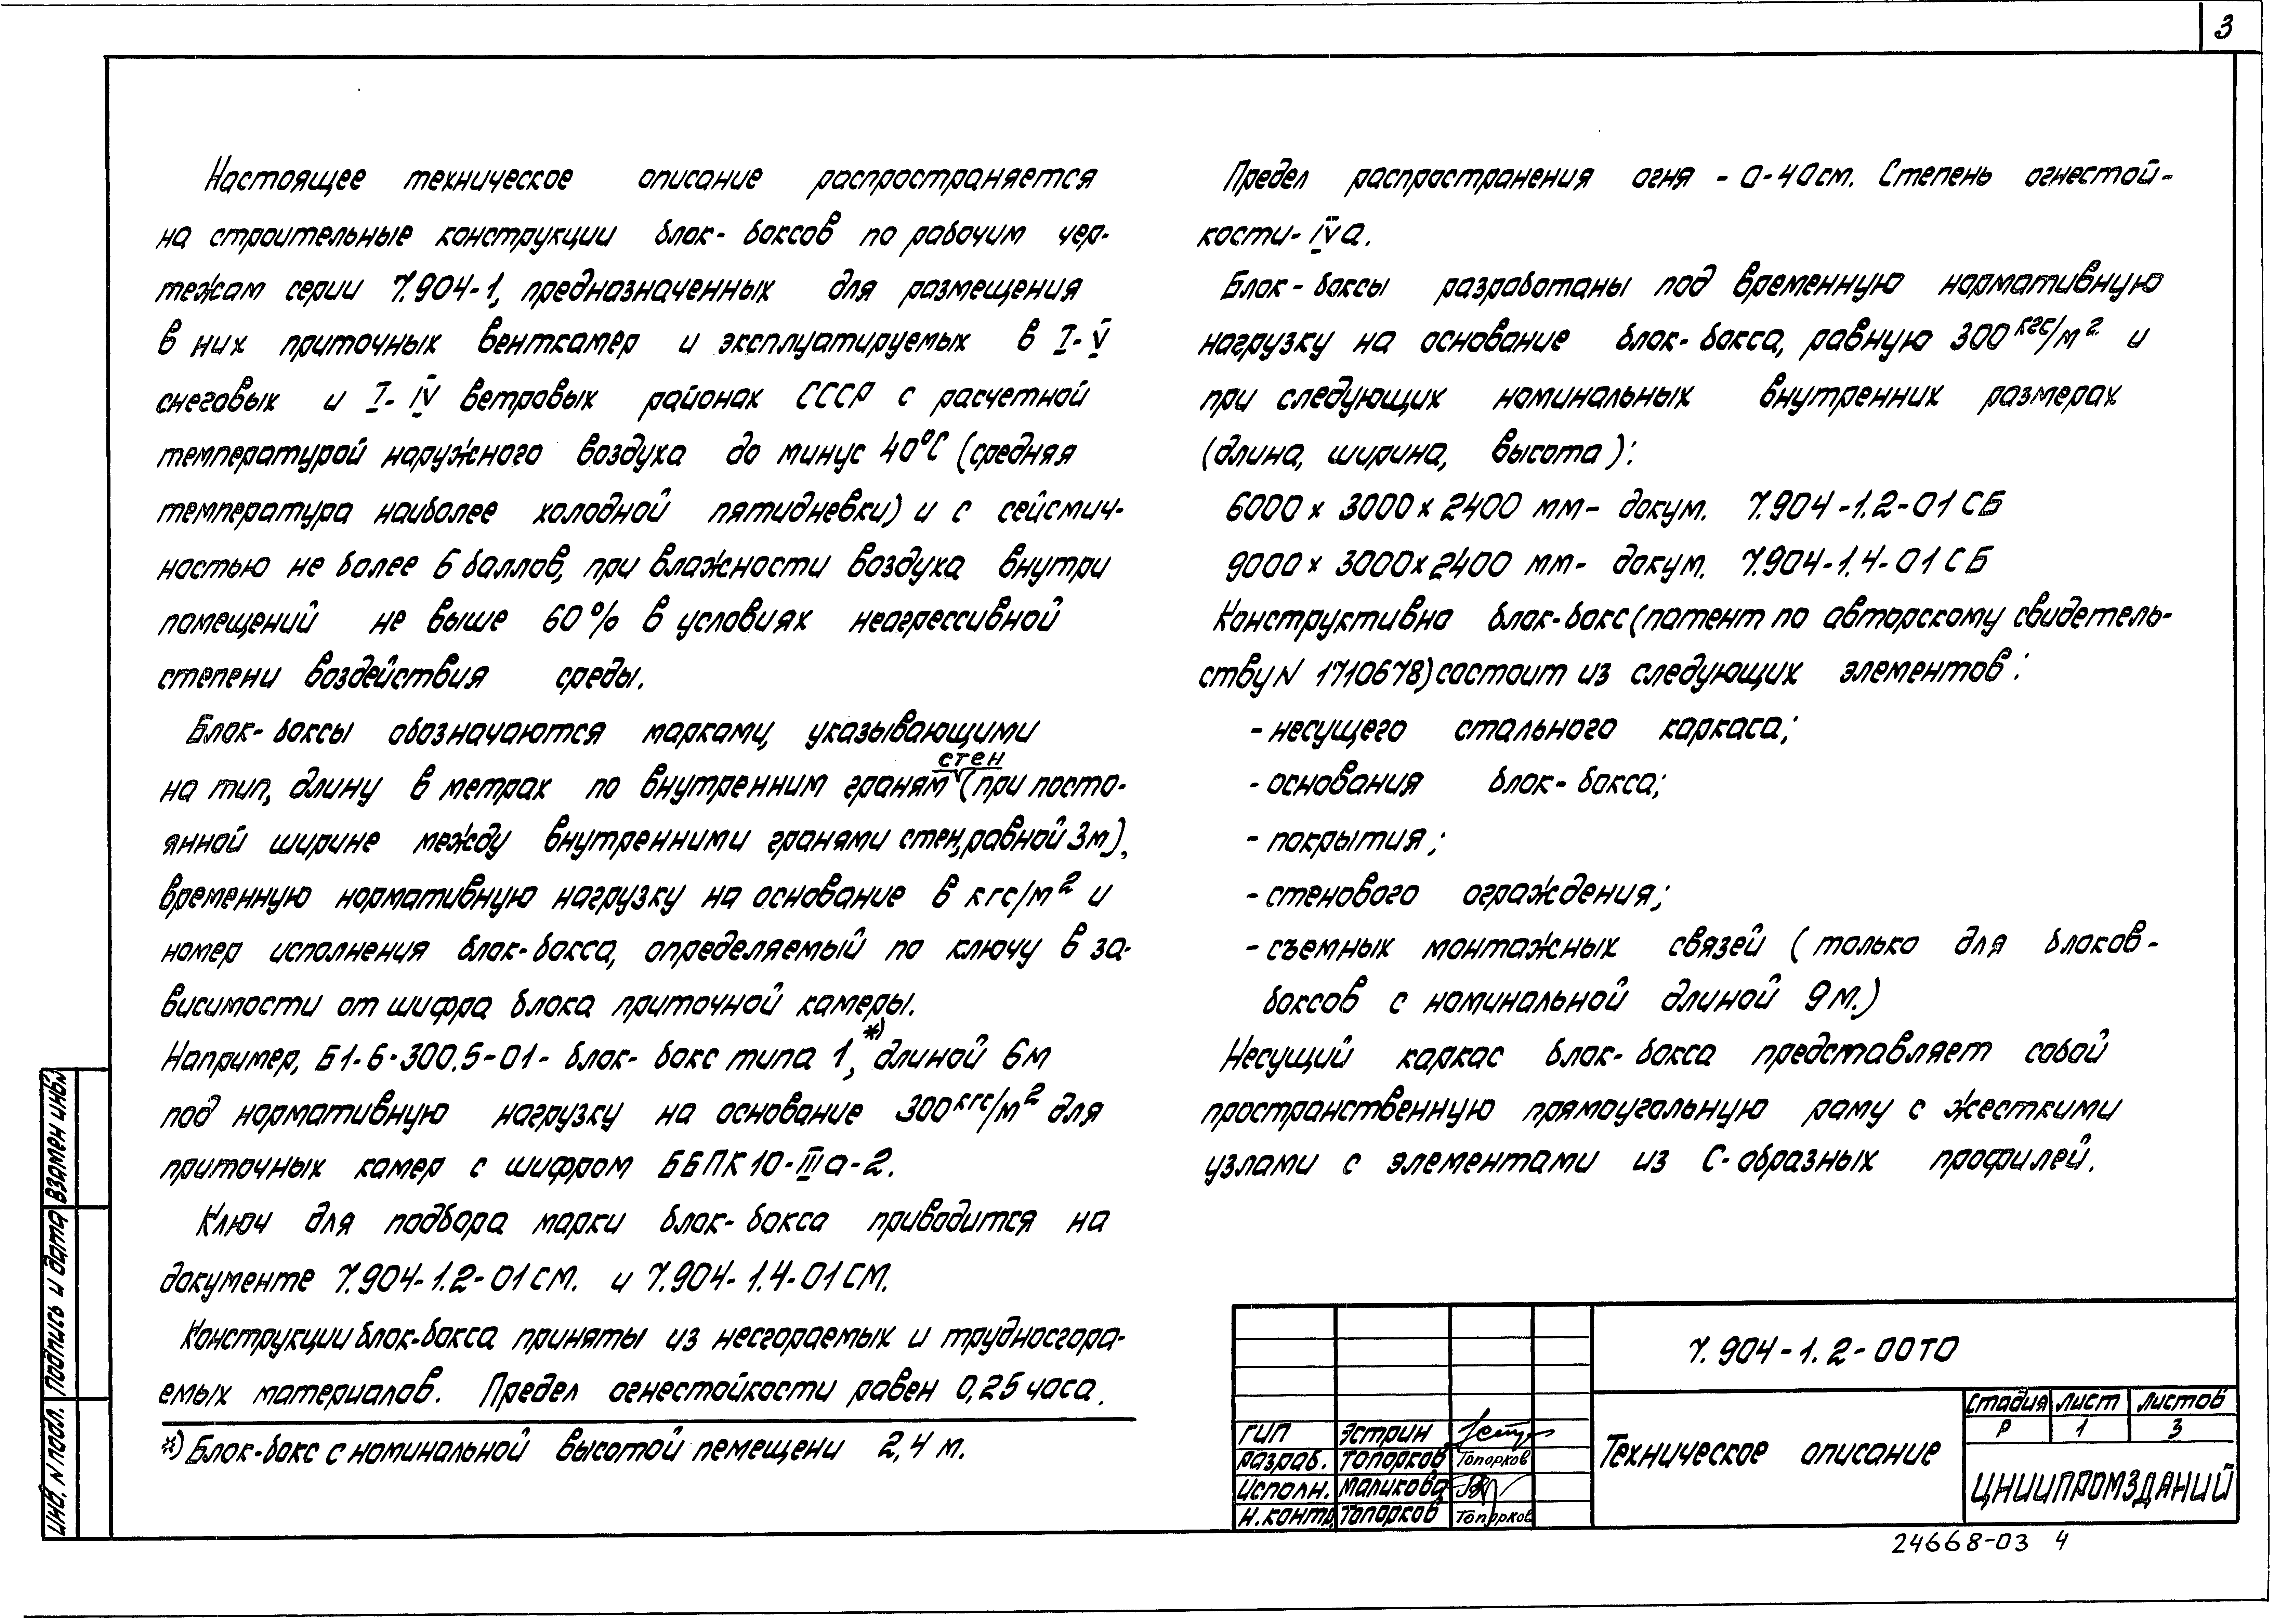 3
Настоящее техническое описание распространяется
на строительные конструкции блок-боксов по рабочим чер-
тежам серии 7.904-1, предназначенных для размещения
в них приточных венткамер и эксплуатируемых в I-V
снеговых и I-IV ветровых районах СССР с расчетной
температурой наружного воздуха до минус 40°С (средняя
температура наиболее холодной пятидневки) и с сейсмич-
ностью не более 6 баллов, при влажности воздуха внутри
помещений не выше 60% в условиях неагрессивной
степени воздействия среды.
Блок-боксы обозначаются марками, указывающими
на тип, длину в метрах по внутренним граням стен (при посто-
янной ширине между внутренними гранями стен, равной 3м),
временную нормативную нагрузку на основание в кгс/м² и
номер исполнения блок-бокса, определяемый по ключу в за-
висимости от шифра блока приточной камеры.
Например, Б1-6-300.5-01- блок-бокс типа 1,*) длиной 6м
под нормативную нагрузку на основание 300 кгс/м² для
приточных камер с шифром ББПК10-IIIа-2.
Ключ для подбора марки блок-бокса приводится на
документе 7.904-1.2-01СМ. и 7.904-1.4-01СМ.
Конструкции блок-бокса приняты из несгораемых и трудносгора-
емых материалов. Предел огнестойкости равен 0,25 часа.
*) Блок-бокс с номинальной высотой пемещени 2,4 м.
Предел распространения огня - 0-40см. Степень огнестой-
кости-IVа.
Блок-боксы разработаны под временную нормативную
нагрузку на основание блок-бокса, равную 300 кгс/м² и
при следующих номинальных внутренних размерах
(длина, ширина, высота):
6000 х 3000 х 2400 мм- докум. 7.904-1.2-01СБ
9000 х 3000 х 2400 мм- докум. 7.904-1.4-01СБ
Конструктивно блок-бокс (патент по авторскому свидетель-
ству N 1710678) состоит из следующих элементов:
- несущего стального каркаса;
- основания блок-бокса;
- покрытия;
- стенового ограждения;
- съемных монтажных связей (только для блоков-
боксов с номинальной длиной 9м.)
Несущий каркас блок-бокса представляет собой
пространственную прямоугольную раму с жесткими
узлами с элементами из С-образных профилей.
инв. N подл. Подпись и дата Взамен инв.N
7.904-1.2-00ТО
ГИП Эстрин
Разраб. Топорков Топорков
Исполн. Маликова
Н.контр. Топорков Топорков
Техническое описание
Стадия Лист Листов
Р 1 3
ЦНИИПРОМЗДАНИЙ
24668-03 4